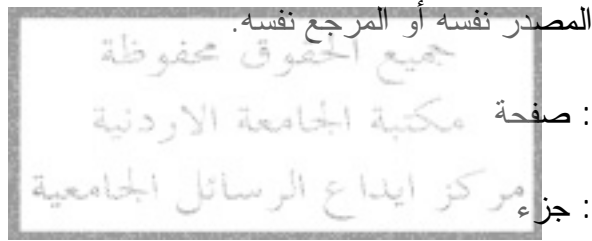 المصدر نفسه أو المرجع نفسه.
جميع الحقوق محفوظة
: صفحة
مكتبة الجامعة الاردنية
: جزء
مركز ايداع الرسائل الجامعية